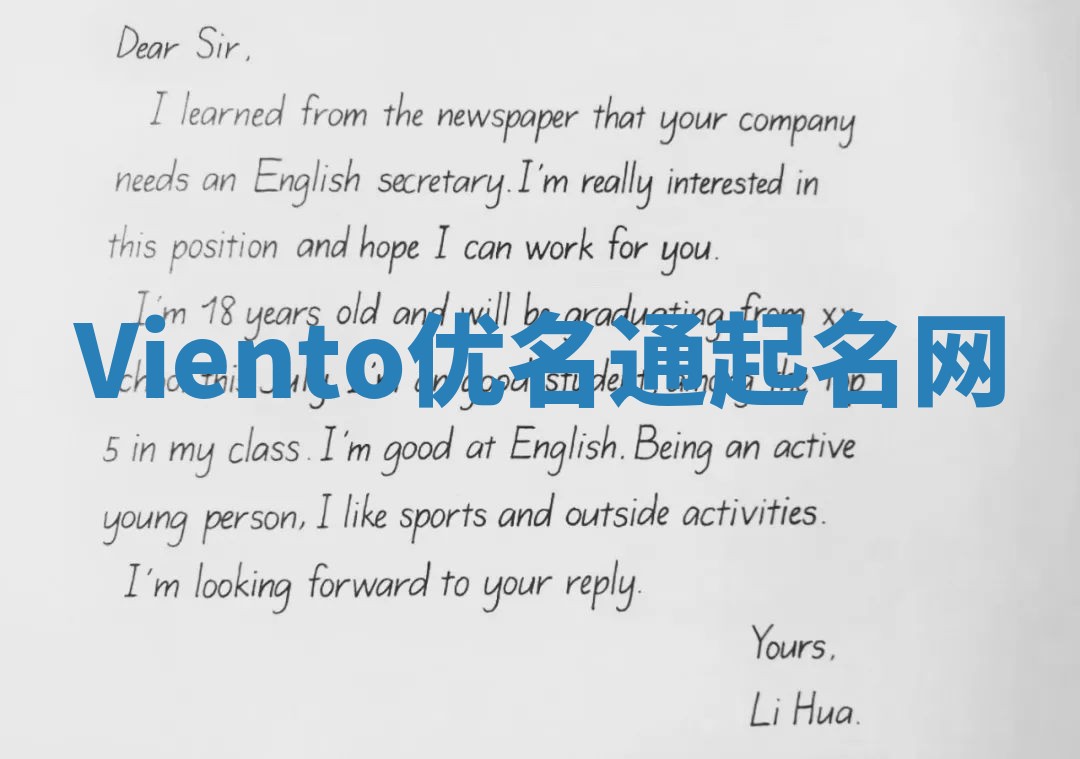 Dear Sir,
I learned from the newspaper that your company
needs an English secretary. I'm really interested in
this position and hope I can work for you.
I'm 18 years old and will be graduating from xx
Viento优名通起名网
school this July. I'm a good student, among the top
5 in my class. I'm good at English. Being an active
young person, I like sports and outside activities.
I'm looking forward to your reply.
Yours,
Li Hua.